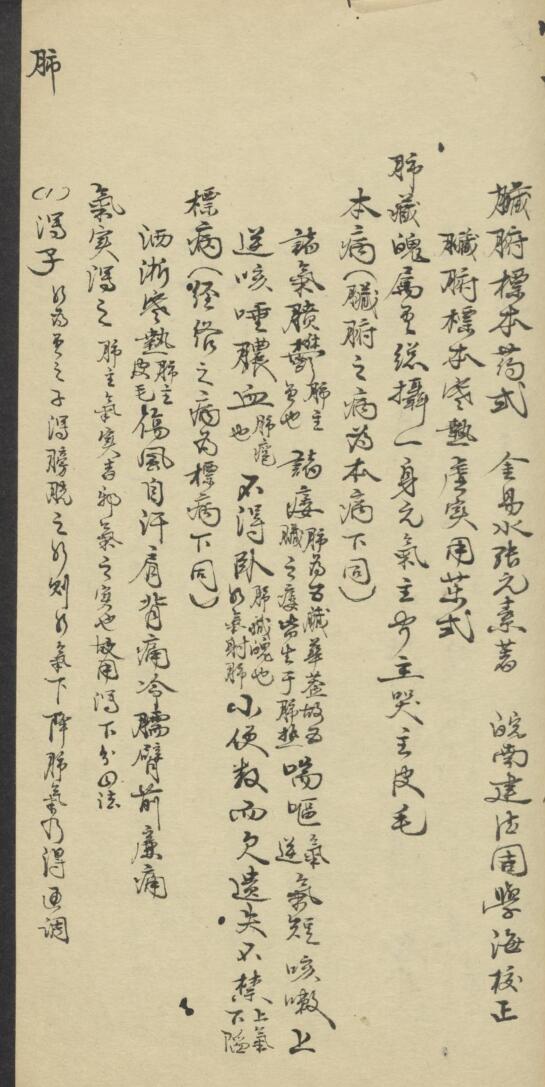 臟腑標本药式　金易水張元素著　皖南建德周學海校正
臟腑標本寒熱虛實用药式
肺藏魄屬金總攝一身元氣主聞主哭主皮毛
本病(臟腑之病為本病下同)
諸氣膹鬱肺主氣也諸痿肺為五臟華蓋故五臟之痿皆生于肺熱喘嘔氣逆氣短咳嗽上
逆咳唾膿血肺瘡也不得臥肺臟魄也水氣射肺小便数而欠遺失不禁上氣下陷
標病(經络之病為標病下同)
洒淅寒熱肺主皮毛傷風自汗肩背痛冷臑臂前廉痛
氣实瀉之肺主氣实者邪氣之实也故用瀉下分四法
(1)瀉子水為金之子瀉膀胱之水则水氣下降肺氣乃得通調
肺